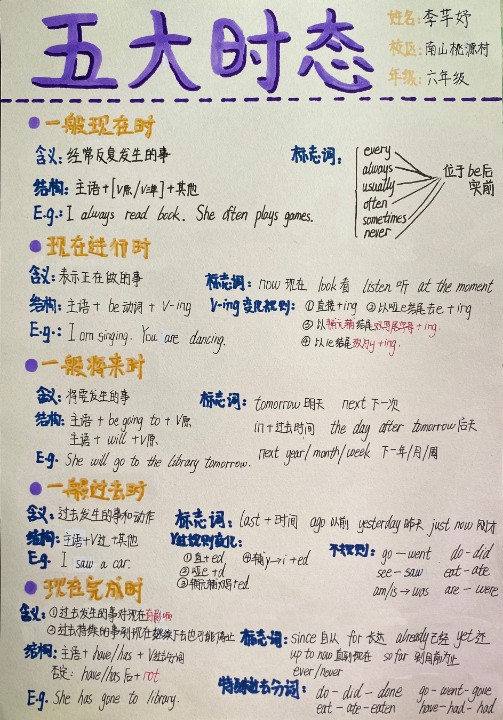 五大时态
姓名: 李芊妤
校区: 南山桃源村
年级: 六年级
一般现在时
含义: 经常反复发生的事
标志词:
every
always
usually
often
sometimes
never
位于be后
实前
结构: 主语+[V原/V三单]+其他
E.g.: I always read book. She often plays games.
现在进行时
含义: 表示正在做的事
标志词: now 现在 look 看 listen 听 at the moment
结构: 主语 + be动词 + V-ing
V-ing 变化规则: ①直接+ing ②以哑e结尾去e+ing
③以辅元辅结尾双写尾字母+ing.
④以ie结尾改为y+ing.
E.g.: I am singing. You are dancing.
一般将来时
含义: 将要发生的事
标志词: tomorrow 明天 next 下一次
in+过去时间 the day after tomorrow 后天
next year/month/week 下一年/月/周
结构: 主语 + be going to + V原
主语 + will + V原
E.g. She will go to the library tomorrow.
一般过去时
含义: 过去发生的事和动作
标志词: last + 时间 ago 以前 yesterday 昨天 just now 刚才
结构: 主语+V过+其他
V过规则变化:
①直+ed ④辅y→i+ed
②哑e+d
③辅元辅双写+ed
不规则: go—went do-did
see—saw eat-ate
am/is→was are—were
E.g. I saw a car.
现在完成时
含义: ①过去发生的事对现在有影响
②过去持续的事到现在继续下去也可能停止
标志词: since 自从 for 长达 already 已经 yet 还
up to now 直到现在 so far 到目前为止
ever/never
结构: 主语 + have/has + V过去分词
否定: have/has后+not
特殊过去分词: do - did - done go - went - gone
eat - ate - eaten have - had - had
E.g. She has gone to library.